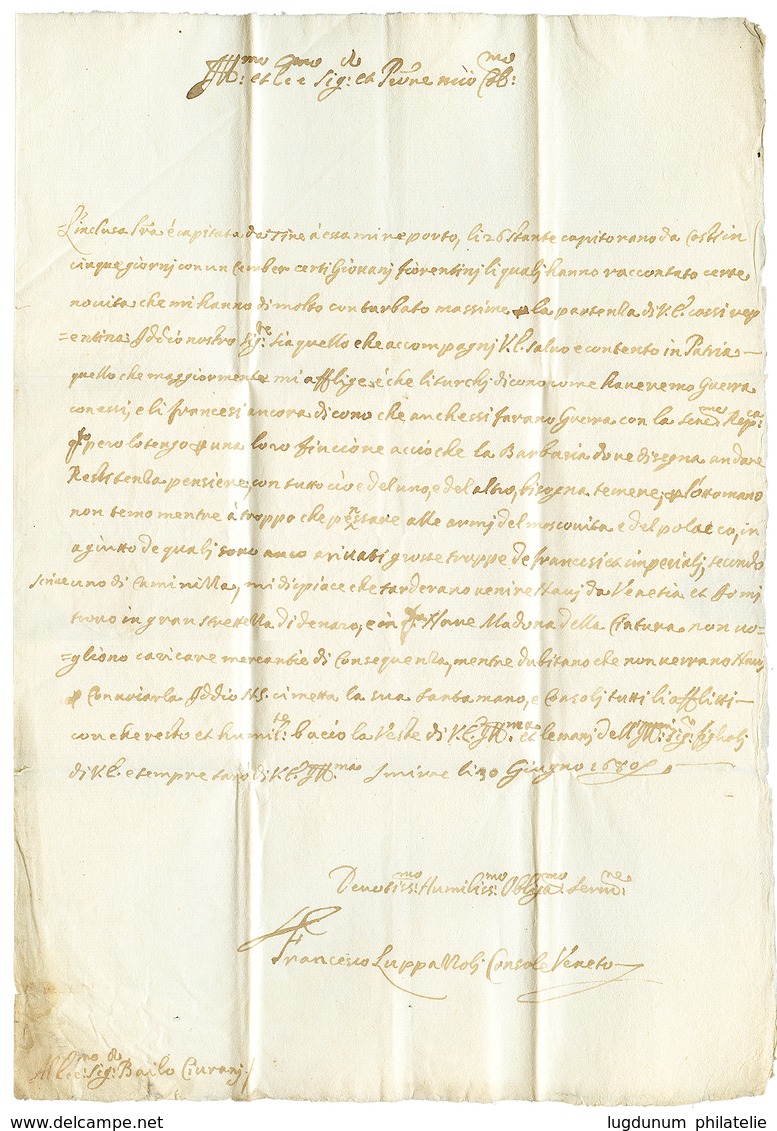 Ill:mo et Ecc:mo Sig:r et Prōne mio Col:mo
L'inclusa lr̄a è capitata da Tine à essa mi reporto, li 26 stante capitorano da Costi in
cinque giorni con un Cember certi Giovanj fiorentinj li qualj hanno raccontato certe
novita che mi hanno di molto conturbato massime la partenza di V.E. cossi rep
=entina: Iddio nostro Sig:re sia quello che accompagnj V.E. salvo e contento in Patria —
quello che maggiormente mi afflige è che li turchj dicono come haveremo Guerra
con essi, e li francesi ancora dicono che anch essi farano Guerra con la Seren:mo Rep:ca
pero lo tengo una loro fincione acciò che la Barbaria dove disegna andare
Resistenza pensiere, con tutto ciò e del uno, e del altro, bisogna temere, l'ottomano
non temo mentre à troppo che pensare alle armj del moscovita e del polacco, in
agiuto de qualj sono anco arivati grosse troppe de francesi et imperialj, secondo
scrive uno di Caminizza, mi dispiace che tarderano venire Navj da Venetia et io mi
trovo in gran strettezza di denaro, e in Nave Madona della Cintura non vo-
=gliono caricare mercantie di Consequenza, mentre dubitano che non verrano Navj
Convoiarla Iddio N.S. ci metta la sua santa mano, e Consolj tutti li afflitti —
con che resto et humil:te bacio la Veste di V.E. Ill:ma et le manj dell'Ill:mi Sig:ri figliolj
di V.E. e sempre sarò di V.E. Ill:ma Smirne li 30 Giugno 1680
Devotiss:mo Humiliss:mo Oblig:mo Servo:re
Francesco Luppazzolj Console Veneto
All Ecc:mo Sig:r Bailo Civranj